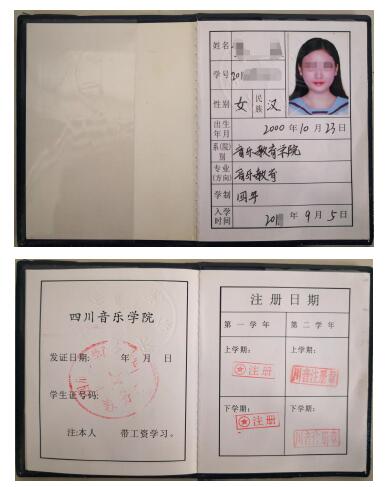 姓名
学号 201
性别 女 民族 汉
出生年月 2000年10月23日
系(院)别 音乐教育学院
专业(方向) 音乐教育
学制 四年
入学时间 201 年9月5日
四川音乐学院
发证日期: 年 月 日
学生证号码:
注:本人 带工资学习。
注册日期
第一学年 第二学年
上学期: 上学期:
注册 川音注册章
下学期: 下学期:
注册